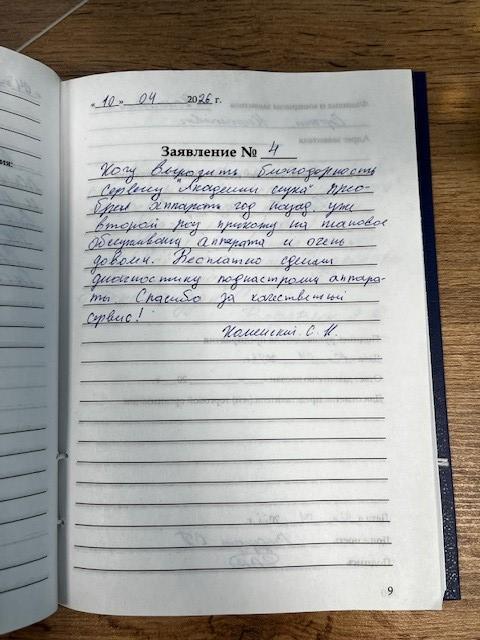 « 10 » 04 2026 г.
Заявление № 4
Хочу выразить благодарность
сервису "Академии слуха" прио-
брел аппараты год назад. уже
второй раз прихожу на плановое
обслуживание аппарата и очень
доволен. Бесплатно сделали
диагностику поднастроили аппара-
ты. Спасибо за качественный
сервис!
С. Н.
9